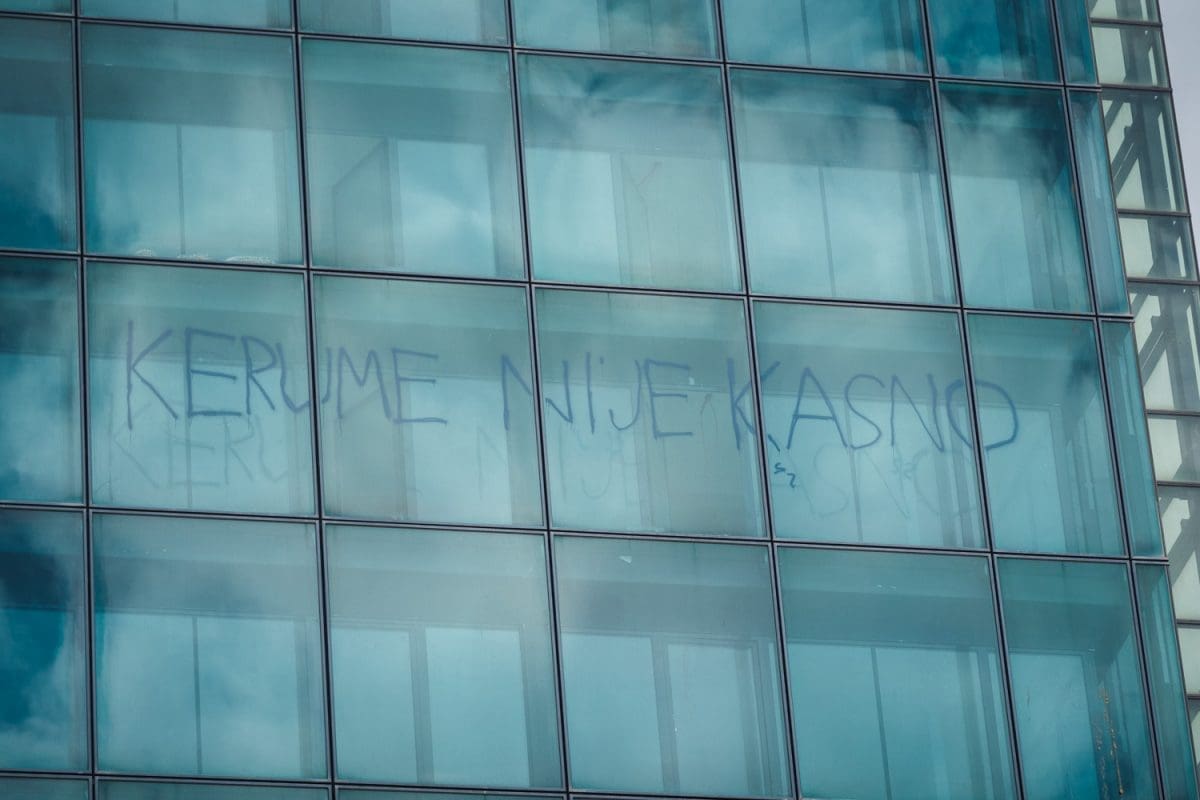 KERUME NIJE KASNO